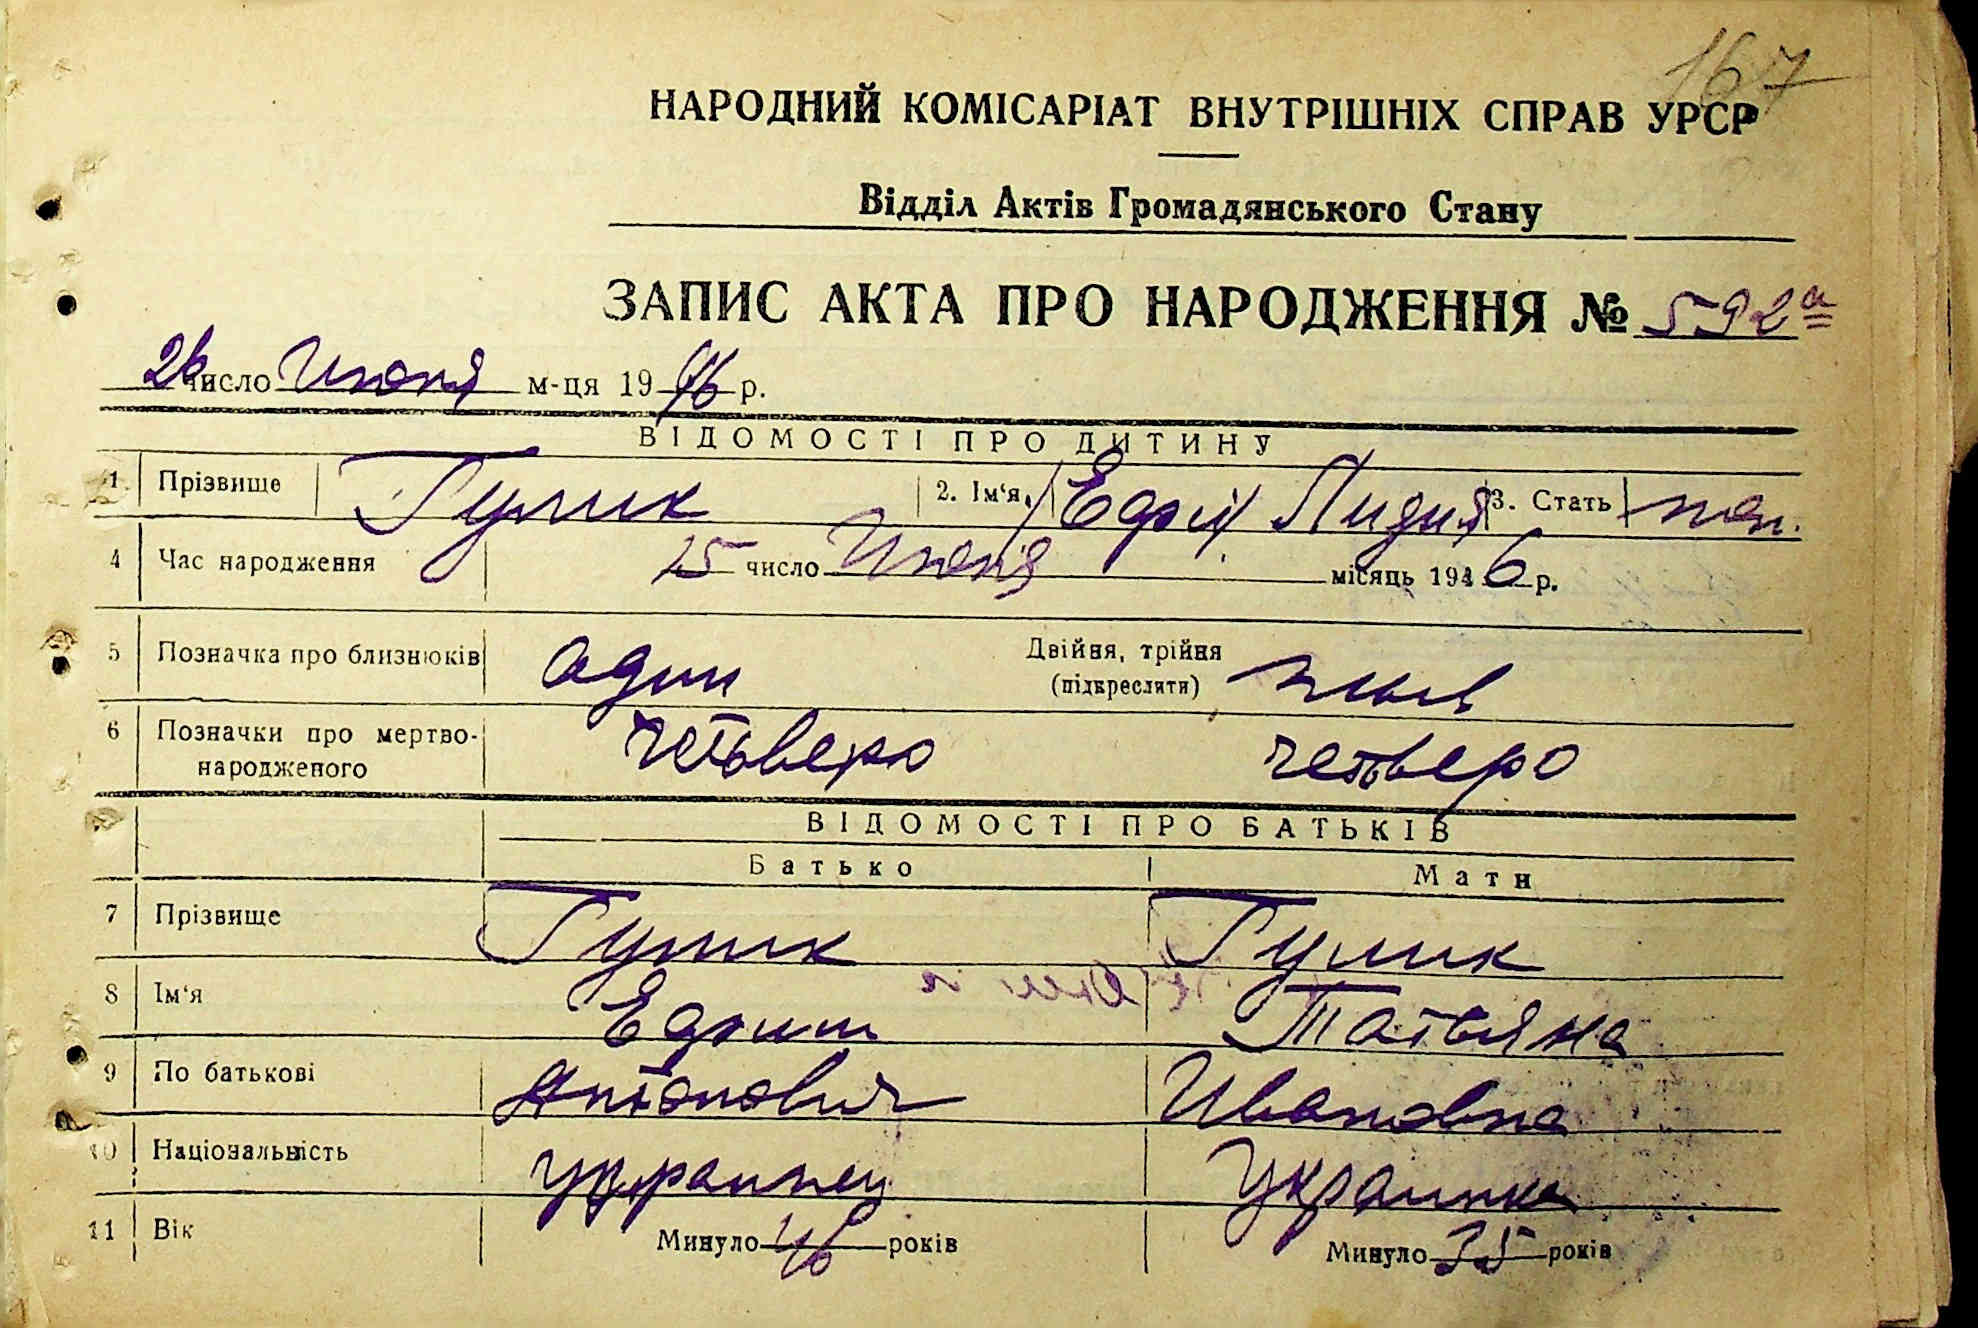 167
НАРОДНИЙ КОМІСАРІАТ ВНУТРІШНІХ СПРАВ УРСР
Відділ Актів Громадянського Стану
ЗАПИС АКТА ПРО НАРОДЖЕННЯ № 592а
26 число Июня м-ця 1946 р.
ВІДОМОСТІ ПРО ДИТИНУ
1 Прізвище Гулик 2. Ім'я Лидия 3. Стать
4 Час народження 25 число Июня місяць 1946 р.
5 Позначка про близнюків один Двійня, трійня
(підкреслити)
6 Позначки про мертво- четверо четверо
народженого
ВІДОМОСТІ ПРО БАТЬКІВ
Батько Мати
7 Прізвище Гулик Гулик
8 Ім'я Ефим Татьяна
9 По батькові Антонович Ивановна
10 Національність украинец Украинка
11 Вік Минуло 46 років Минуло 35 років